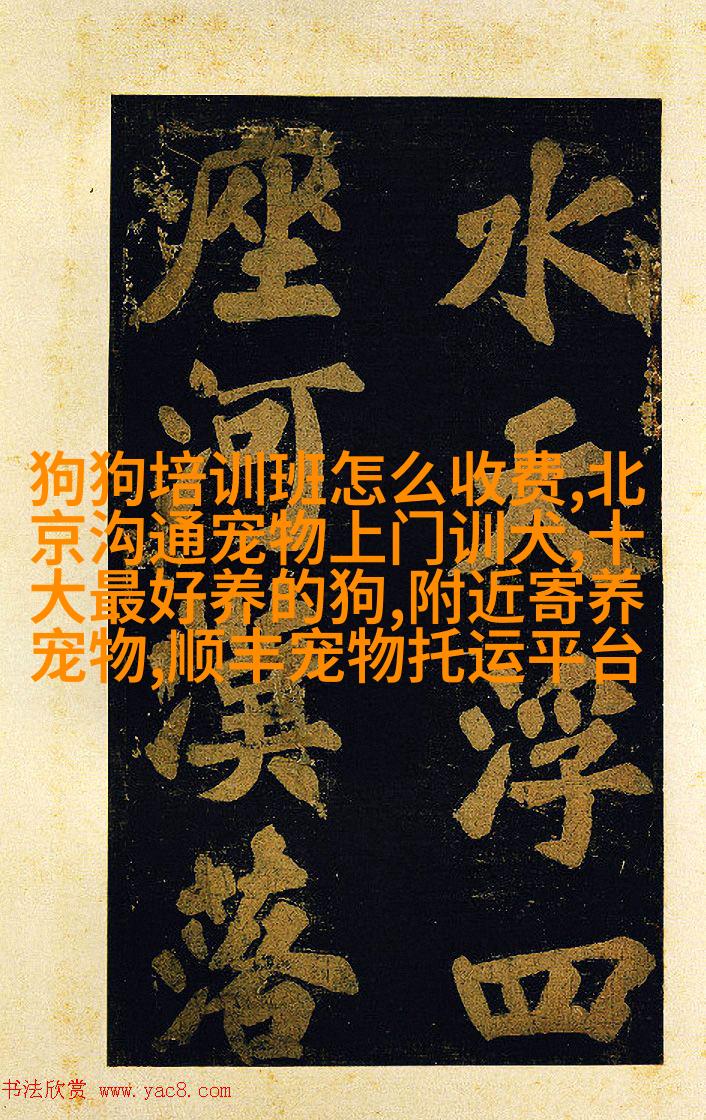 水天浮四
座河漢落
狗狗培训班怎么收费,北
京沟通宠物上门训犬,十
大最好养的狗,附近寄养
宠物,顺丰宠物托运平台
书法欣赏 www.yac8.com